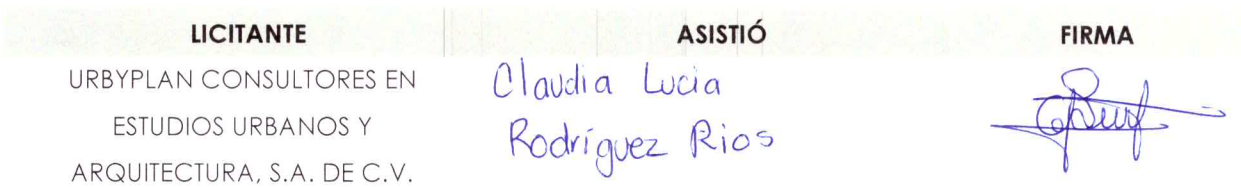 LICITANTE ASISTIÓ FIRMA
URBYPLAN CONSULTORES EN
ESTUDIOS URBANOS Y
ARQUITECTURA, S.A. DE C.V.
Claudia Lucia
Rodríguez Rios